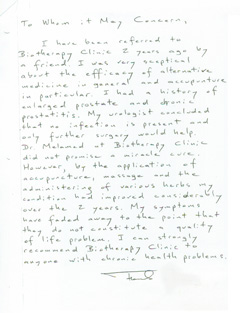 To Whom it May Concern,
I have been referred to
Biotherapy Clinic 2 years ago by
a friend. I was very sceptical
about the efficacy of alternative
medicine in general and accupuncture
in particular. I had a history of
enlarged prostate and chronic
prostatitis. My urologist concluded
that no infection is present and
only further surgery would help.
Dr. Melamed at Biotherapy Clinic
did not promise a miracle cure.
However, by the application of
accupuncture, massage and the
administering of various herbs my
condition had improved considerably
over the 2 years. My symptoms
have faded away to the point that
they do not constitute a quality
of life problem. I can strongly
recommend Biotherapy Clinic to
anyone with chronic health problems.